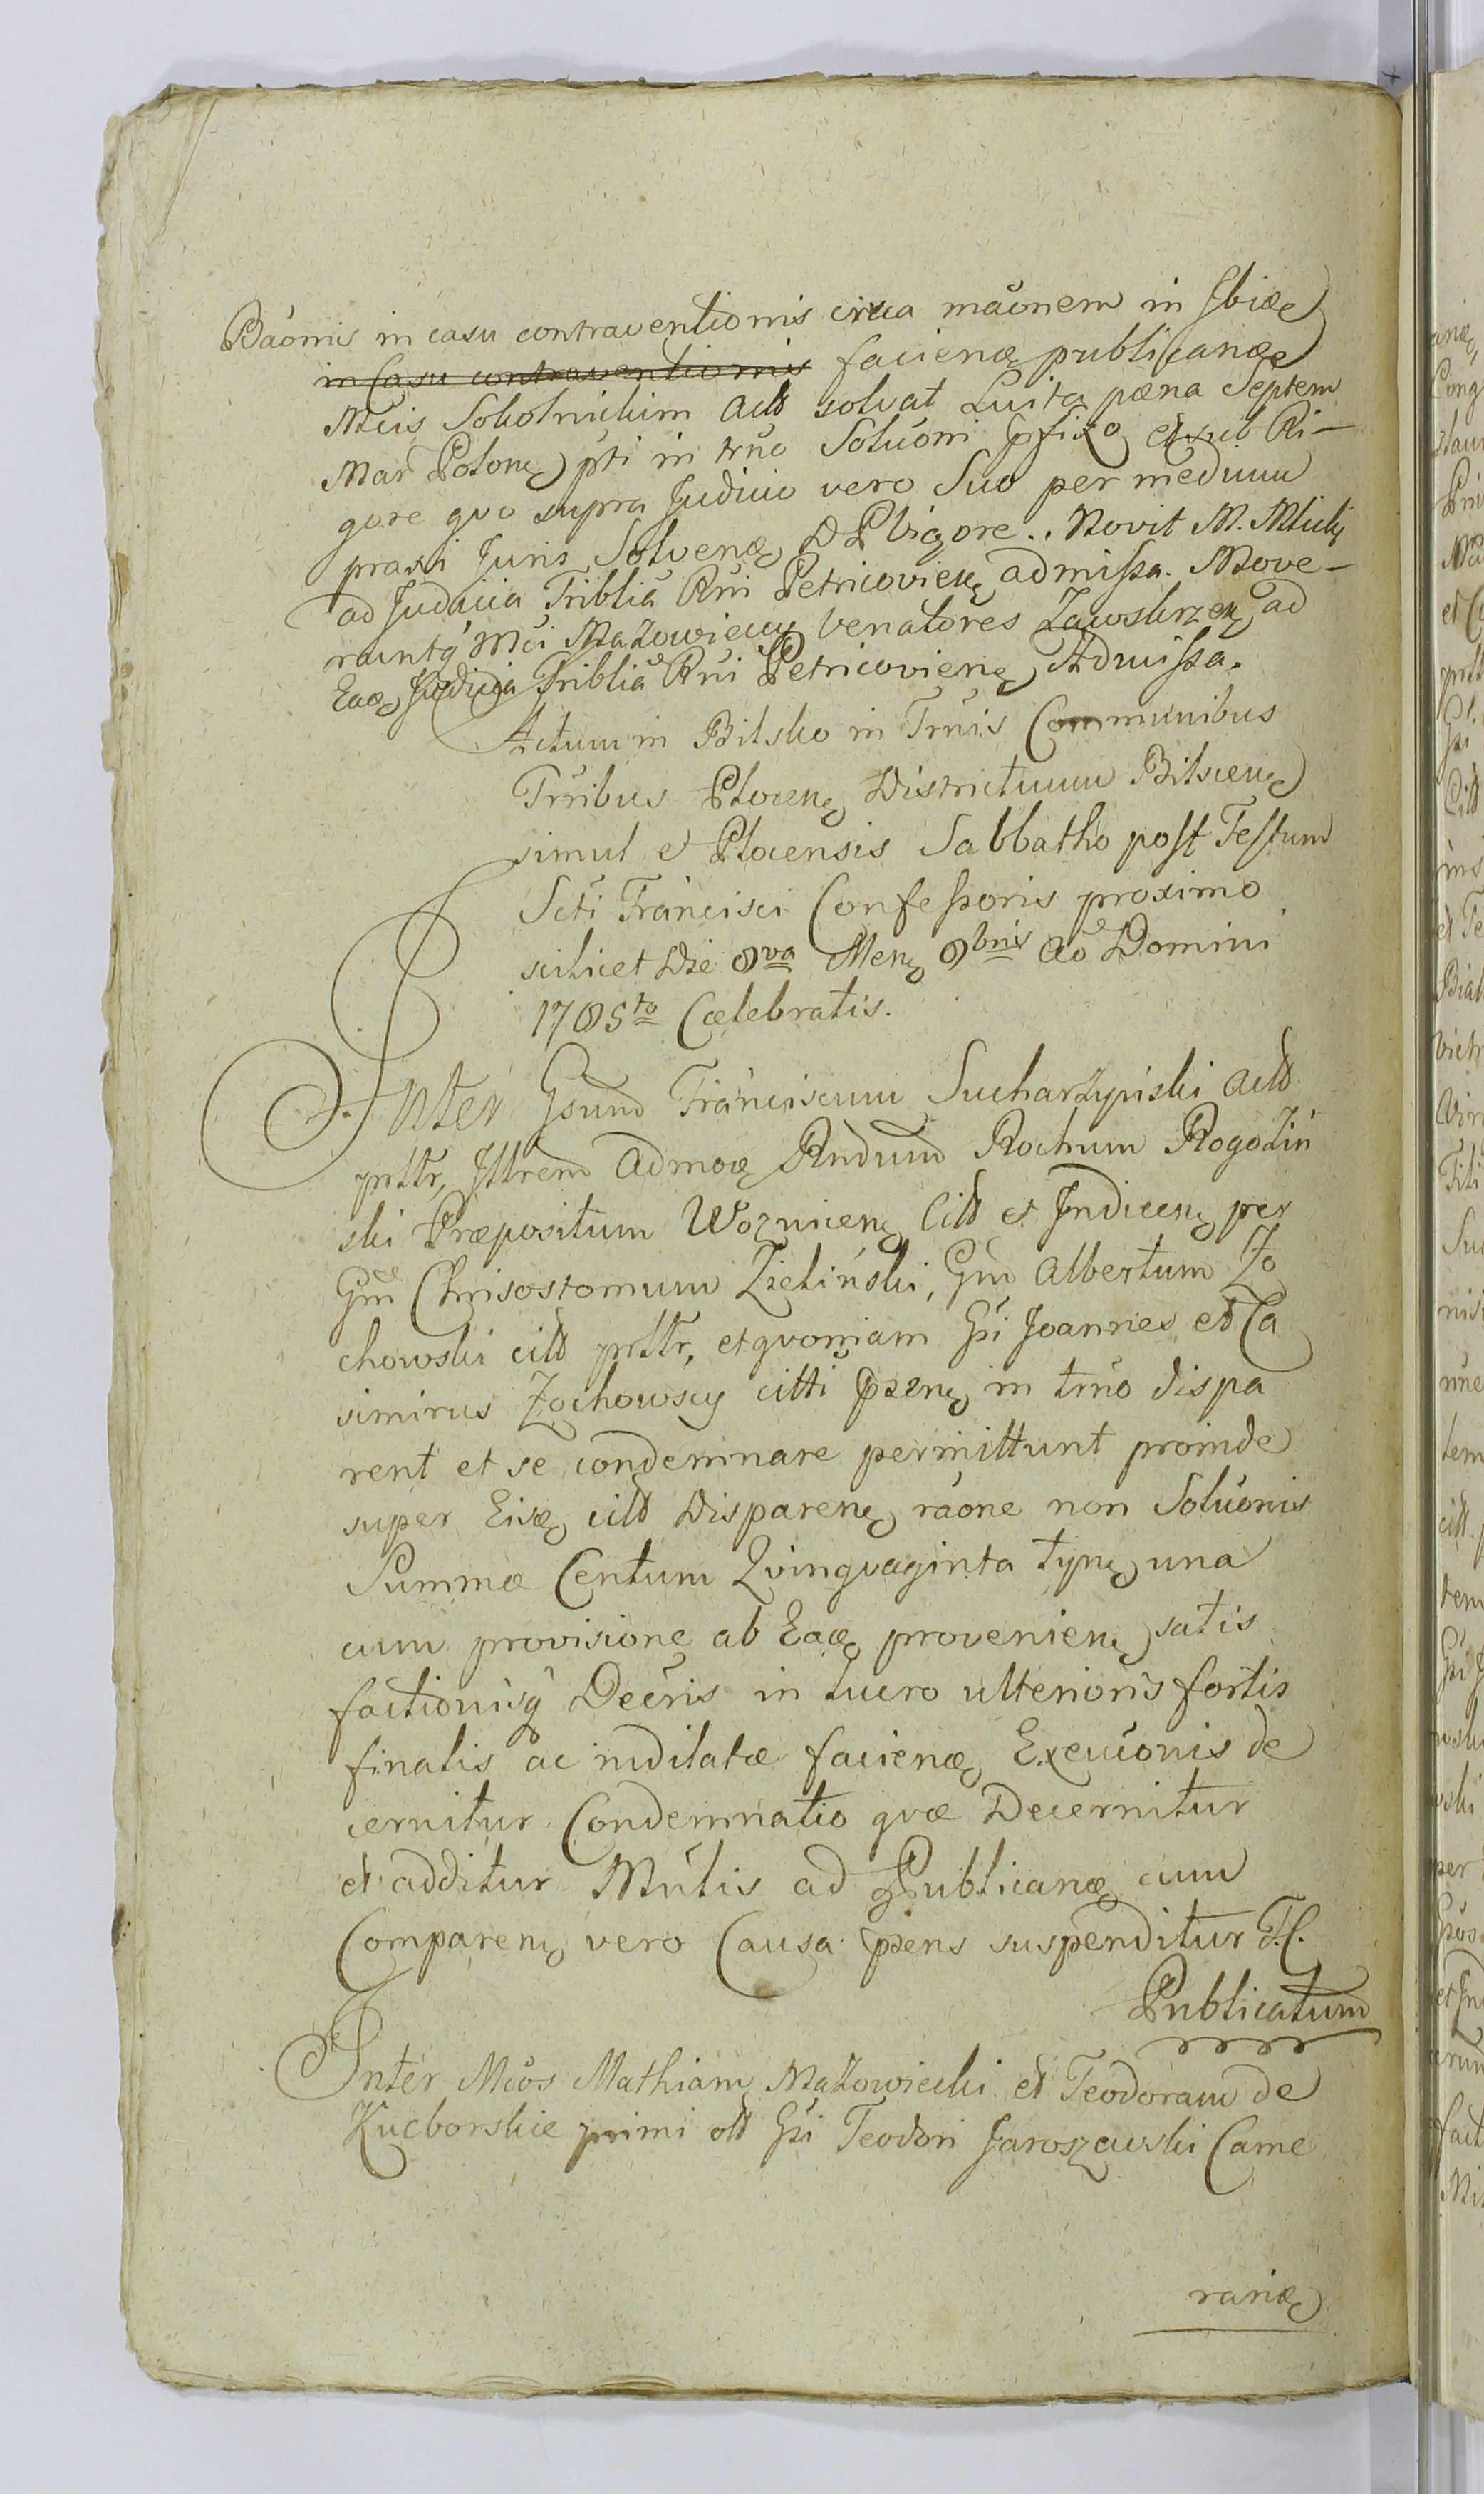 Baonis in casu contraventionis circa maonem in Jbidę
in Casu contraventionis facienę publicanę
Mcis Sokolnickim actt solvat Luita pæna Septem
Mar Polonę pti in trno Soluoni pfixo et sub Ri-
gore quo supra Judicio vero Suo per medium
praxi Juris Solvenę D P Vigore. Movit M. Mlicki
ad Judicia Triblia Rni Petricovienę admissa. Move-
runtq Mci Mazowieccy Venatores Zawskrzenę ad
Eaę Judicia Triblia Rni Petricovienę Admissa.
Actum in Bilsko in Trnis Communibus
Trribus Plocenę Districtuum Bilscenę
simul et Plocensis Sabbatho post Festum
Scti Francisci Confessoris proximo
scilicet Die 8va Menę 8bris Ao Domini
1785to Cælebratis.
Inter Gsum Franciscum Sucharzypiski actt
prttr, Jttrem admoę Rndum Rochum Rogoziń
ski Præpositum Woznicenę Citt et Indicenę per
Gm Chrisostomum Zieliński, Gm Albertum Zo
chowski citt prttr, et qvoniam Gsi Joannes et Ca
simirus Zochowscy citti pzenę in trno dispa
rent et se condemnare permittunt proinde
super Eisę citt Disparenę raone non Soluonis
Summæ Centum Qvinqvaginta tynę una
cum provisione ab Eaę provenienę satis
factionisq Decris in lucro ulterioris fortis
finalis ac indilatæ facienę Execuonis de
cernitur Condemnatio qvæ Decernitur
et additur Mntis ad Publicanę cum
Comparenę vero Causa pzens suspenditur T. C.
Publicatum
Inter Mcos Mathiam Mazowiecki et Teodoram de
Kucborskie primi ott Gsi Teodori Jaroszewski Came
rarię